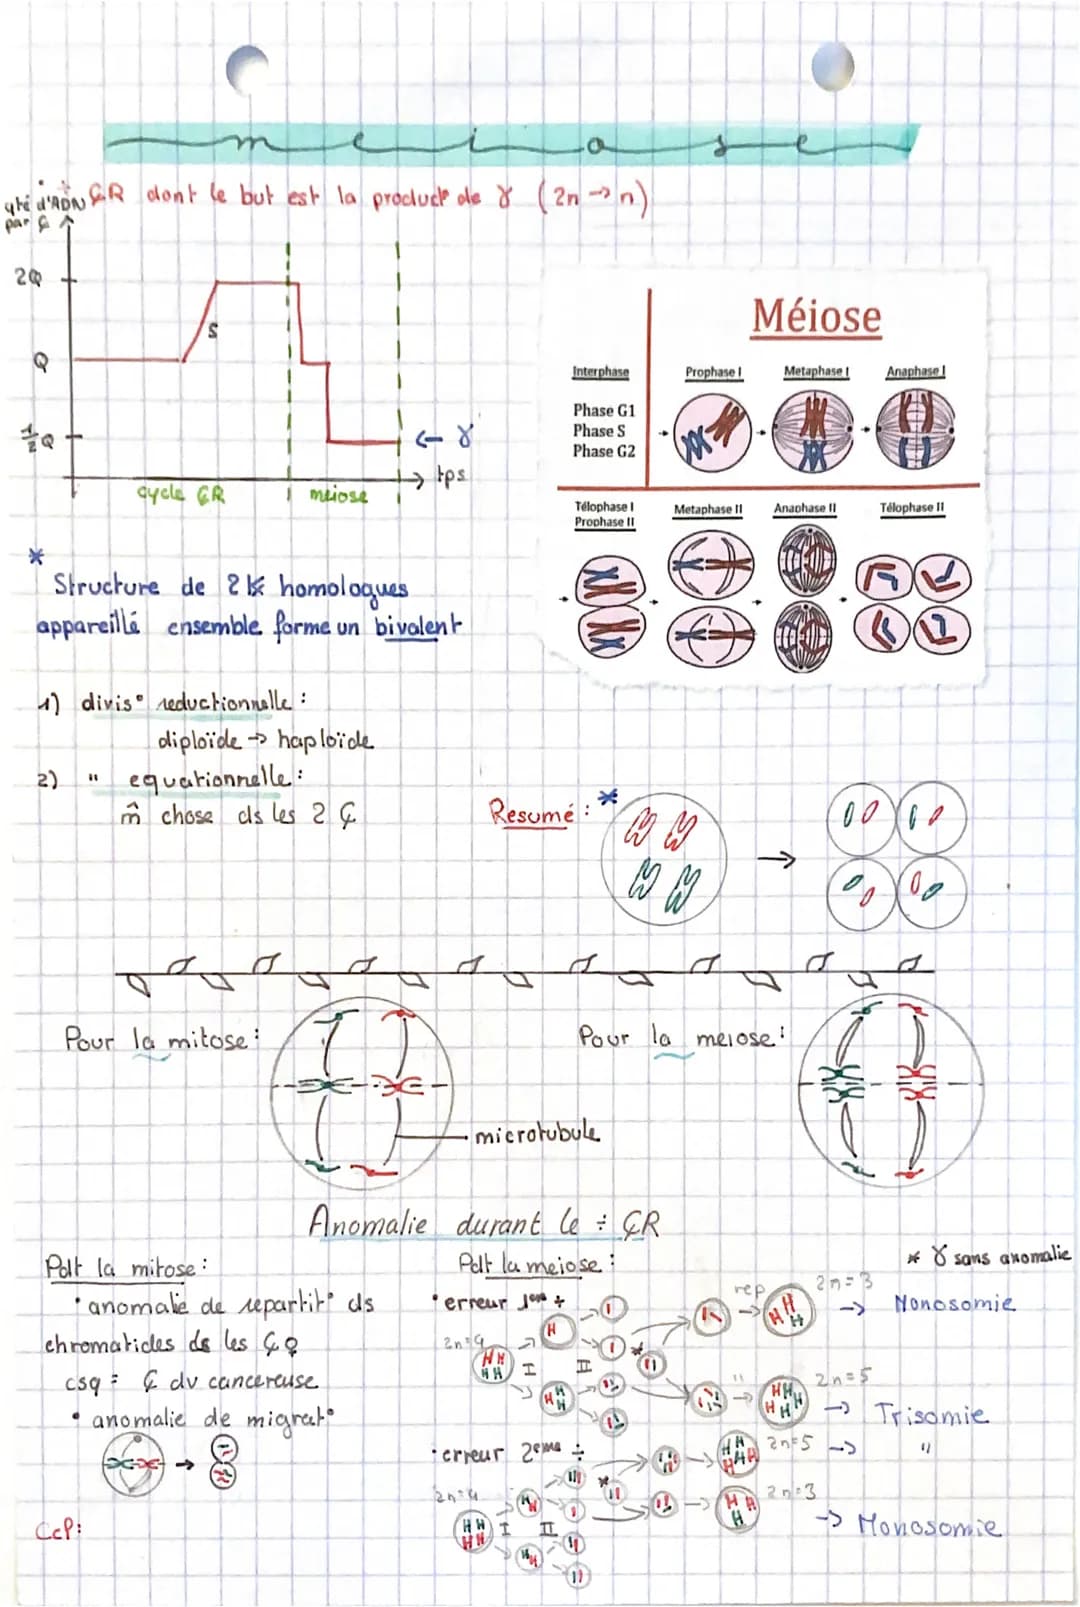 meiose
* ȻR dont le but est la product° de γ (2n → n)
qté d'ADN
par Ȼ
2Q
S
Q
½Q
← γ
tps
cycle ȻR
meiose
Méiose
Interphase
Prophase I
Metaphase I
Anaphase I
Phase G1
Phase S
Phase G2
Télophase I
Prophase II
Metaphase II
Anaphase II
Télophase II
*
Structure de 2 K homologues
appareillé ensemble forme un bivalent
1) divis° reductionnelle :
diploïde → haploïde
2) " equationnelle :
m̂ chose ds les 2 Ȼ
Resumé : *
→
Pour la mitose :
Pour la meiose :
microtubule
Anomalie durant le ÷ ȻR
Pdt la mitose :
• anomalie de repartit° ds
chromatides ds les Ȼ ♀
csq = Ȼ du cancereuse
• anomalie de migrat°
CcP :
Pdt la meiose :
* γ sans anomalie
• erreur 1ere ÷
2n=4
I
II
*
rep
2n=3
→ Monosomie
"
2n=5
→ Trisomie
• erreur 2eme ÷
2n=4
I
II
*
2n=5 → "
2n=3
→ Monosomie